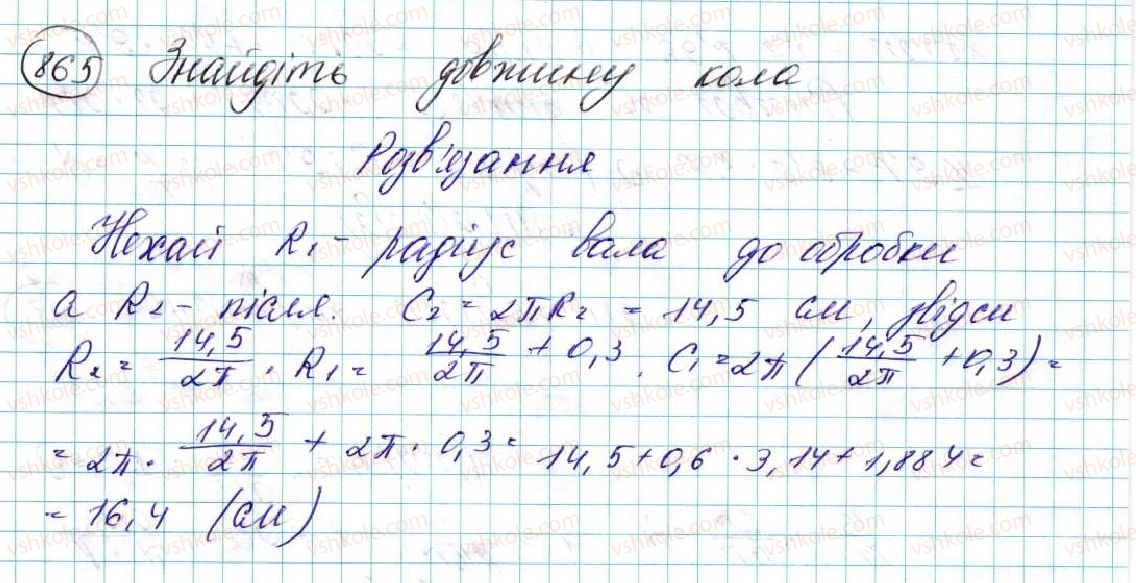 865 Знайдіть довжину кола
Розв'язання
Нехай R₁ – радіус вала до обробки
а R₂ – після. C₂ = 2πR₂ = 14,5 см, звідси
R₂ = 14,5/2π . R₁ = 14,5/2π + 0,3 . C₁ = 2π (14,5/2π + 0,3) =
= 2π · 14,5/2π + 2π · 0,3 = 14,5 + 0,6 · 3,14 + 1,884 =
= 16,4 (см)